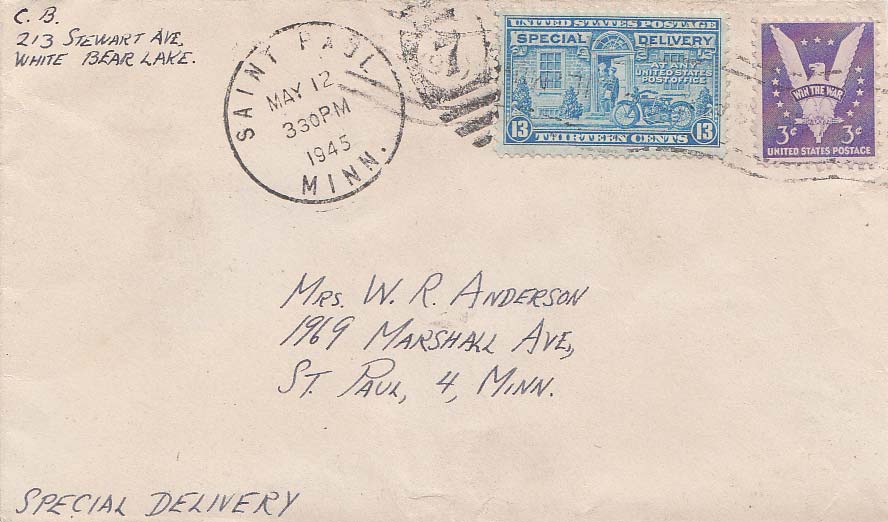 C. B.
213 STEWART AVE,
WHITE BEAR LAKE.
SAINT PAUL
MAY 12
330PM
1945
MINN.
UNITED STATES POSTAGE
SPECIAL DELIVERY
AT ANY
UNITED STATES
POST OFFICE
13 THIRTEEN CENTS 13
WIN THE WAR
3¢ 3¢
UNITED STATES POSTAGE
MRS. W. R. ANDERSON
1969 MARSHALL AVE,
ST. PAUL, 4, MINN.
SPECIAL DELIVERY